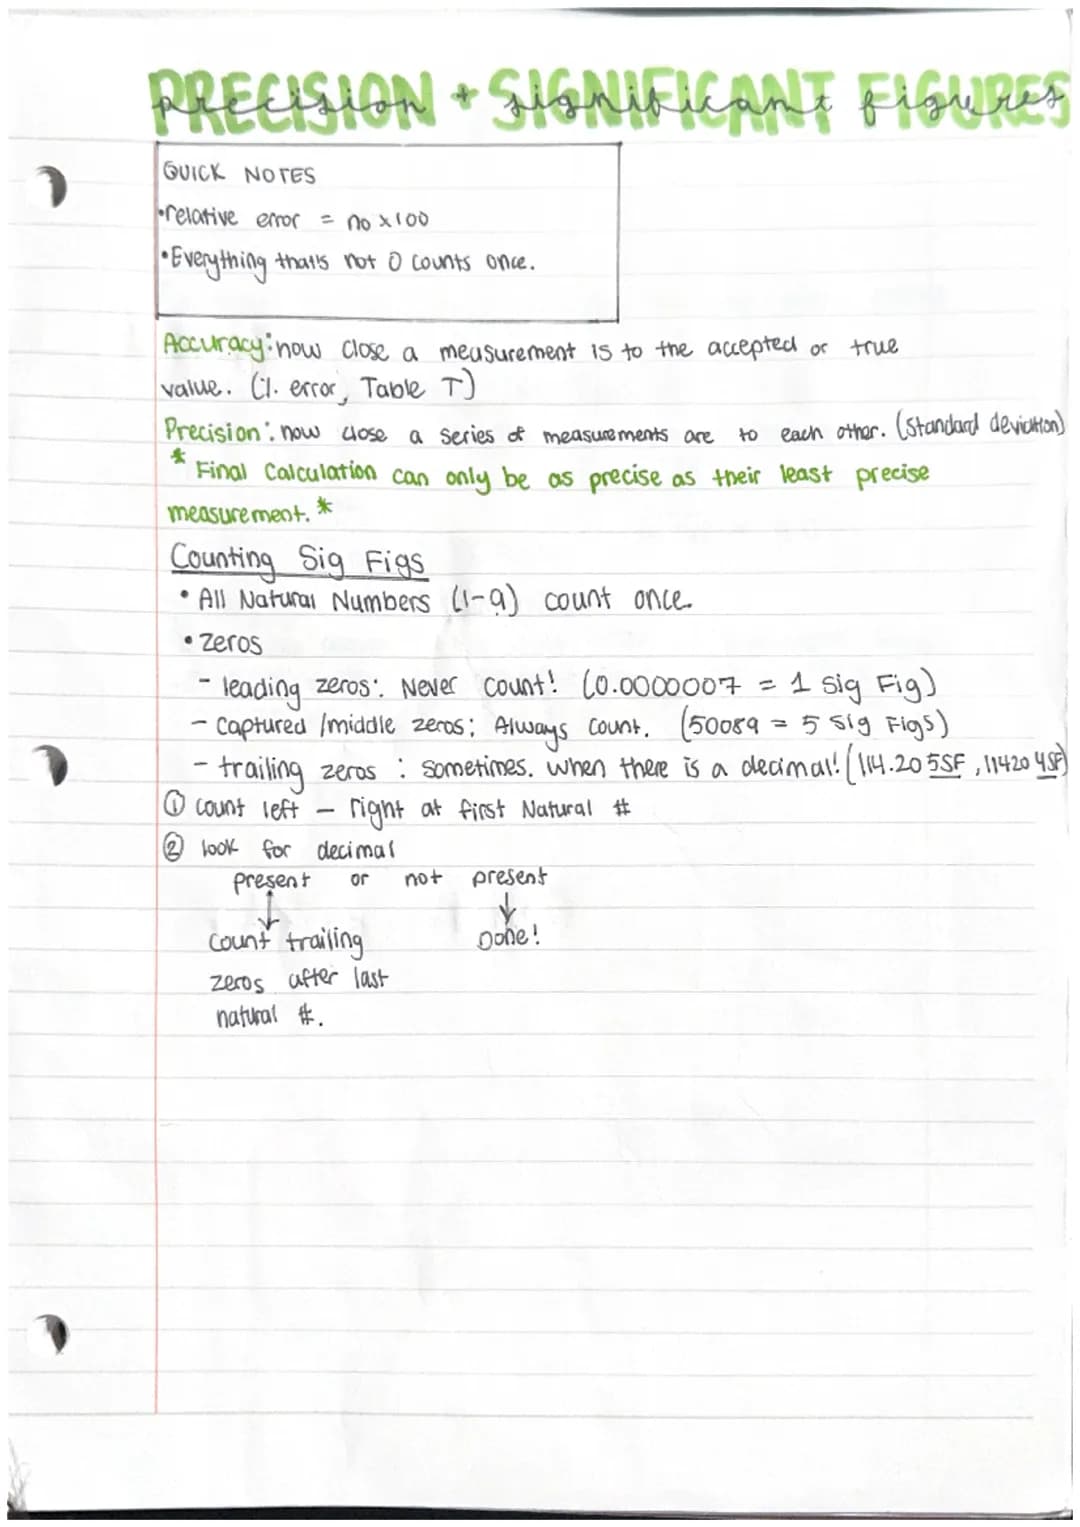 PRECISION + SIGNIFICANT FIGURES
precision + significant figures
QUICK NOTES
•relative error = no x100
•Everything that's not 0 counts once.
Accuracy: how close a measurement is to the accepted or true
value. (% error, Table T)
Precision: how close a series of measurements are to each other. (Standard deviation)
* Final Calculation can only be as precise as their least precise
measurement. *
Counting Sig Figs
• All Natural Numbers (1-9) count once.
• Zeros
- leading zeros: Never count! (0.0000007 = 1 Sig Fig)
- Captured /middle zeros; Always Count. (50089 = 5 Sig Figs)
- trailing zeros : sometimes. when there is a decimal! (114.20 5SF, 11420 4SF)
① Count left - right at first Natural #
② look for decimal
present or not present
↓ ↓
Count trailing Done!
zeros after last
natural #.